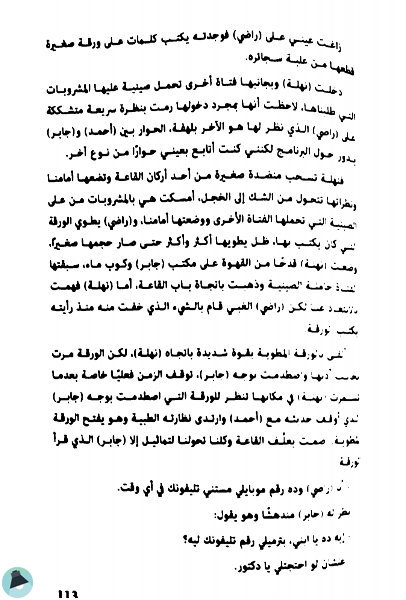 زاغت عيني على (راضي) فوجدته يكتب كلمات على ورقة صغيرة
قطعها من علبة سجائره.
دخلت (نهلة) وبجانبها فتاة أخرى تحمل صينية عليها المشروبات
التي طلبناها، لاحظت أنها بمجرد دخولها رمت بنظرة سريعة متشككة
على (راضي) الذي نظر لها هو الآخر بلهفة، الحوار بين (أحمد) و(جابر)
يدور حول البرنامج لكنني كنت أتابع بعيني حوارًا من نوع آخر.
فنهلة تسحب منضدة صغيرة من أحد أركان القاعة وتضعها أمامنا
ونظراتها تتحول من الشك إلى الخجل، أمسكت هي بالمشروبات من على
الصينية التي تحملها الفتاة الأخرى ووضعتها أمامنا، و(راضي) يطوي الورقة
التي كان يكتب بها، ظل يطويها أكثر وأكثر حتى صار حجمها صغيرًا،
وضعت (نهلة) قدحًا من القهوة على مكتب (جابر) وكوب ماء، سبقتها
الفتاة حاملة الصينية وذهبت باتجاه باب القاعة، أما (نهلة) فهمت
بالابتعاد عنا لكن (راضي) الغبي قام بالشيء الذي خفت منه منذ رأيته
يكتب الورقة
ألقى بالورقة المطوية بقوة شديدة باتجاه (نهلة)، لكن الورقة مرت
بجانب أذنها واصطدمت بوجه (جابر)، توقف الزمن فعليًا خاصة بعدما
تسمرت (نهلة) في مكانها لتنظر للورقة التي اصطدمت بوجه (جابر)
الذي أوقف حديثه مع (أحمد) وارتدى نظارته الطبية وهو يفتح الورقة
المطوية. صمت يغلف القاعة وكلنا تحولنا لتماثيل إلا (جابر) الذي قرأ
الورقة
(راضي) وده رقم موبايلي مستني تليفونك في أي وقت.
نظر له (جابر) مندهشًا وهو يقول:
إيه ده يا ابني، بترميلي رقم تليفونك ليه؟
عشان لو احتجتلي يا دكتور.
113